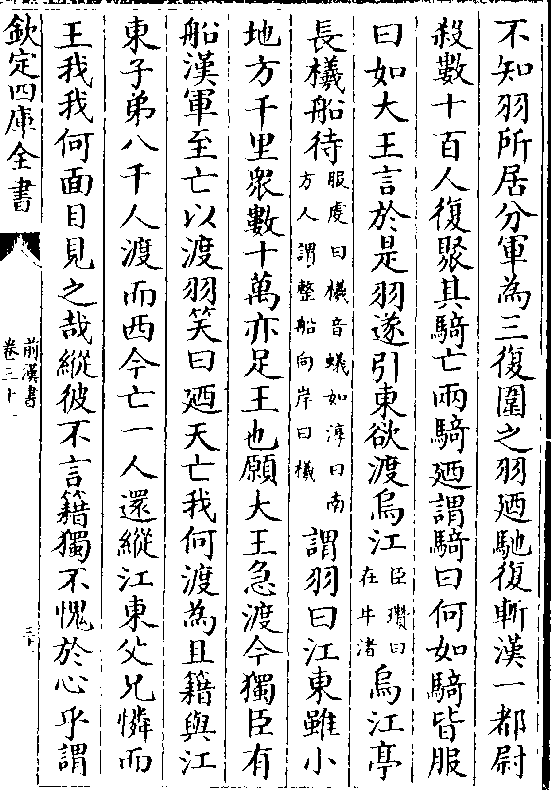 不知羽所居分軍為三復圍之羽廼馳復斬漢一都尉
殺數十百人復聚其騎亡兩騎廼謂騎曰何如騎皆服
曰如大王言於是羽遂引東欲渡烏江臣瓚曰在牛渚烏江亭
長檥船待服虔曰檥音蟻如淳曰南方人謂整船向岸曰檥謂羽曰江東雖小
地方千里衆數十萬亦足王也願大王急渡今獨臣有
船漢軍至亡以渡羽笑曰廼天亡我何渡為且籍與江
東子弟八千人渡而西今亡一人還縱江東父兄憐而
王我我何面目見之哉縱彼不言籍獨不愧於心乎謂
欽定四庫全書
前漢書
卷三十一